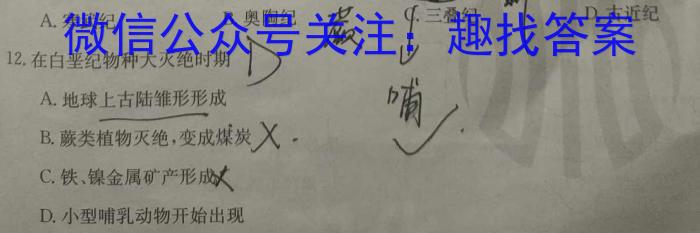 A. 寒武纪 B. 奥陶纪 C. 三叠纪 D. 古近纪
微信公众号关注：趣找答案
12. 在白垩纪物种大灭绝时期 D
A. 地球上古陆雏形形成
哺
B. 蕨类植物灭绝,变成煤炭 ×
C. 铁、镍金属矿产形成 ×
D. 小型哺乳动物开始出现